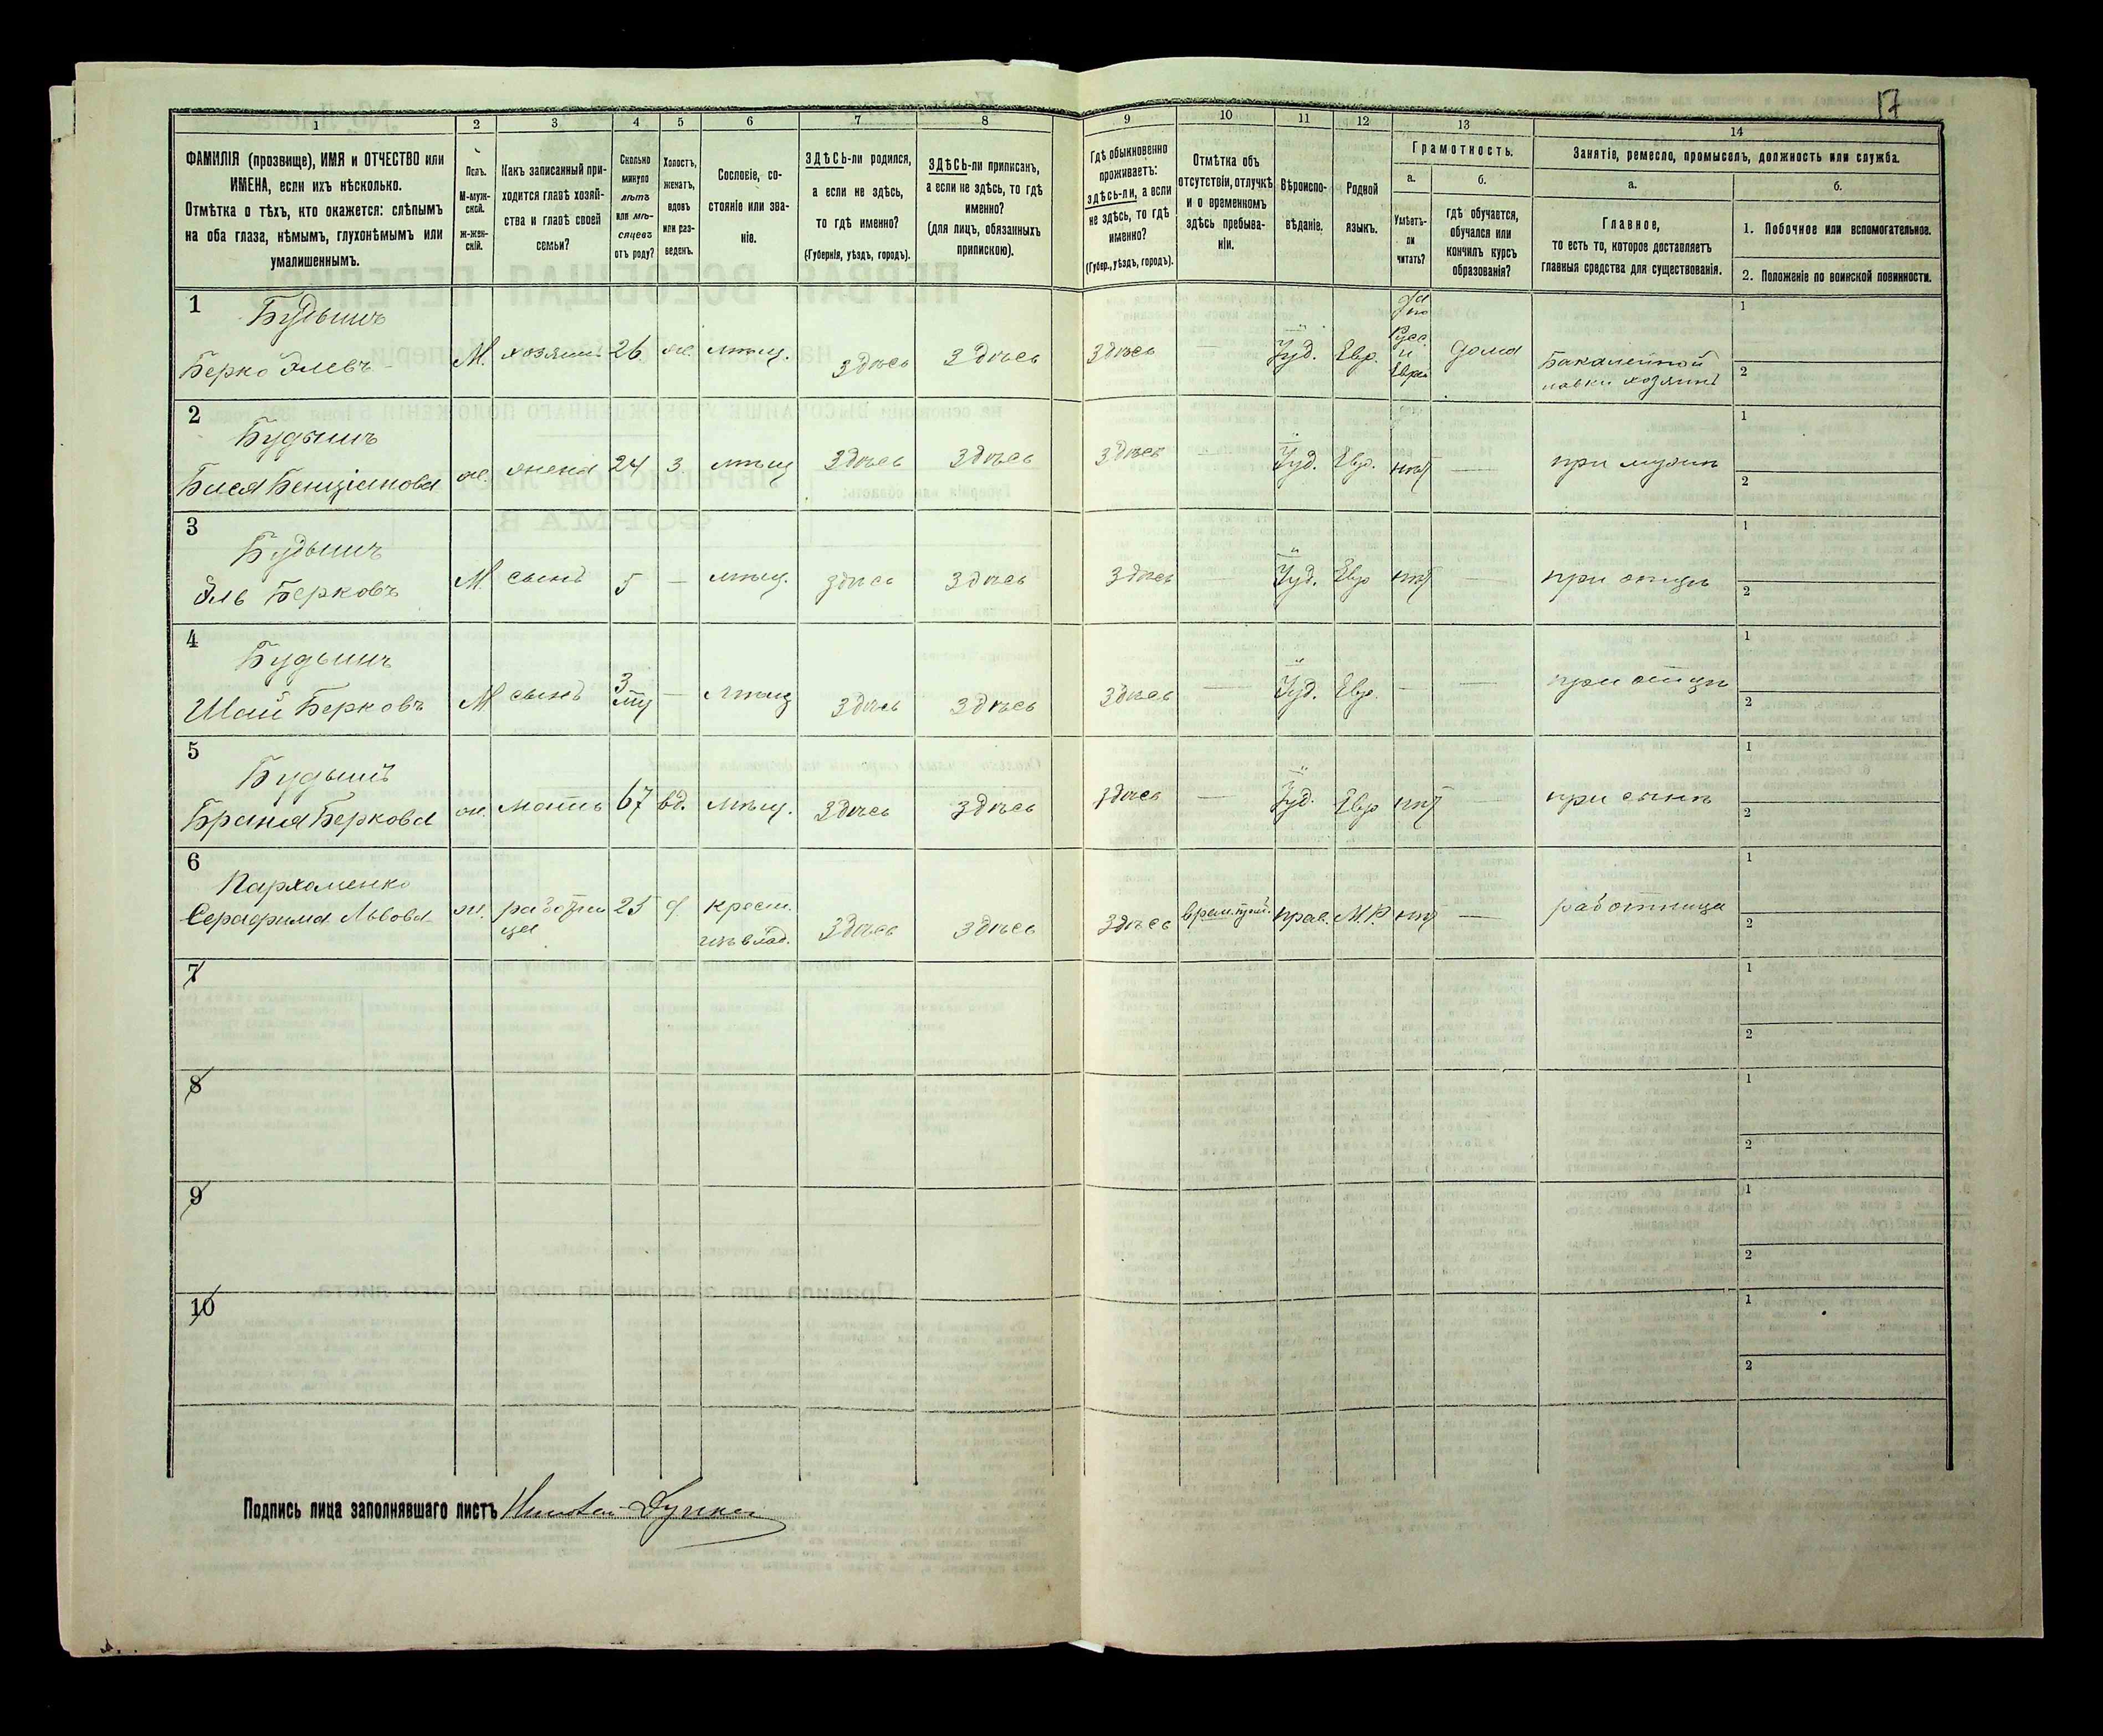 17
1 2 3 4 5 6 7 8 9 10 11 12 13 14
ФАМИЛІЯ (прозвище), ИМЯ и ОТЧЕСТВО или
ИМЕНА, если ихъ нѣсколько.
Отмѣтка о тѣхъ, кто окажется: слѣпымъ
на оба глаза, нѣмымъ, глухонѣмымъ или
умалишеннымъ.
Полъ.
М-муж-
ской.
ж-жен-
скій.
Какъ записанный при-
ходится главѣ хозяй-
ства и главѣ своей
семьи?
Сколько
минуло
лѣтъ
или мѣ-
сяцевъ
отъ роду?
Холостъ,
женатъ,
вдовъ
или раз-
веденъ.
Сословіе, со-
стояніе или зва-
ніе.
ЗДѢСЬ-ли родился,
а если не здѣсь,
то гдѣ именно?
(Губернія, уѣздъ, городъ).
ЗДѢСЬ-ли приписанъ,
а если не здѣсь, то гдѣ
именно?
(для лицъ, обязанныхъ
припискою).
Гдѣ обыкновенно
проживаетъ:
здѣсь-ли, а если
не здѣсь, то гдѣ
именно?
(Губер., уѣздъ, городъ).
Отмѣтка объ
отсутствіи, отлучкѣ
и о временномъ
здѣсь пребыва-
ніи.
Вѣроиспо-
вѣданіе.
Родной
языкъ.
Грамотность.
а.
Умѣетъ-
ли
читать?
б.
гдѣ обучается,
обучался или
кончилъ курсъ
образованія?
Занятіе, ремесло, промыселъ, должность или служба.
а.
Главное,
то есть то, которое доставляетъ
главныя средства для существованія.
б.
1. Побочное или вспомогательное.
2. Положеніе по воинской повинности.
1
Берко Элевъ
М. хозяинъ 26 ж. мѣщ. здѣсь здѣсь здѣсь — Іуд. Евр.
Русс.
и
Евре
дома
Бакалейной
лавки хозяинъ
1
2
2
Бася Бенціанова
ж. жена 24 з. мѣщ здѣсь здѣсь здѣсь — Іуд. Евр. нѣт — при мужѣ
1
2
3
Эль Берковъ
М. сынъ 5 — мѣщ. здѣсь здѣсь здѣсь — Іуд. Евр нѣт — при отцѣ
1
2
4
Шай Берковъ
М сынъ 3 — мѣщ здѣсь здѣсь здѣсь — Іуд. Евр. — — при отцѣ
1
2
5
Берковa
ж. мать 67 вд. мѣщ. здѣсь здѣсь здѣсь — Іуд. Евр нѣт — при сынѣ
1
2
6
Пархоменко
Серафима Львова
ж. работни
ца
25 д. крест. здѣсь здѣсь здѣсь прав. М.Р. нѣт — работница
1
2
7
1
2
8
1
2
9
1
2
10
1
2
Подпись лица заполнявшаго листъ